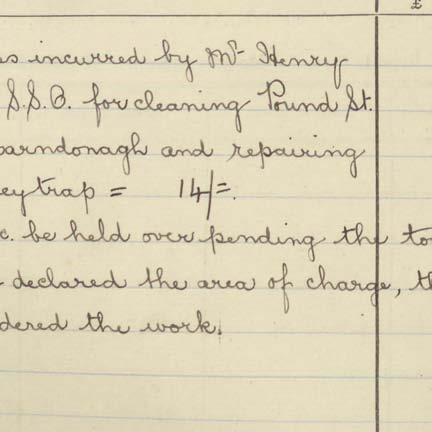 £
es incurred by Mr Henry
S.S.O. for cleaning Pound St.
parndonagh and repairing
ey trap = 14/=.
c. be held over pending the to
declared the area of charge, th
dered the work.